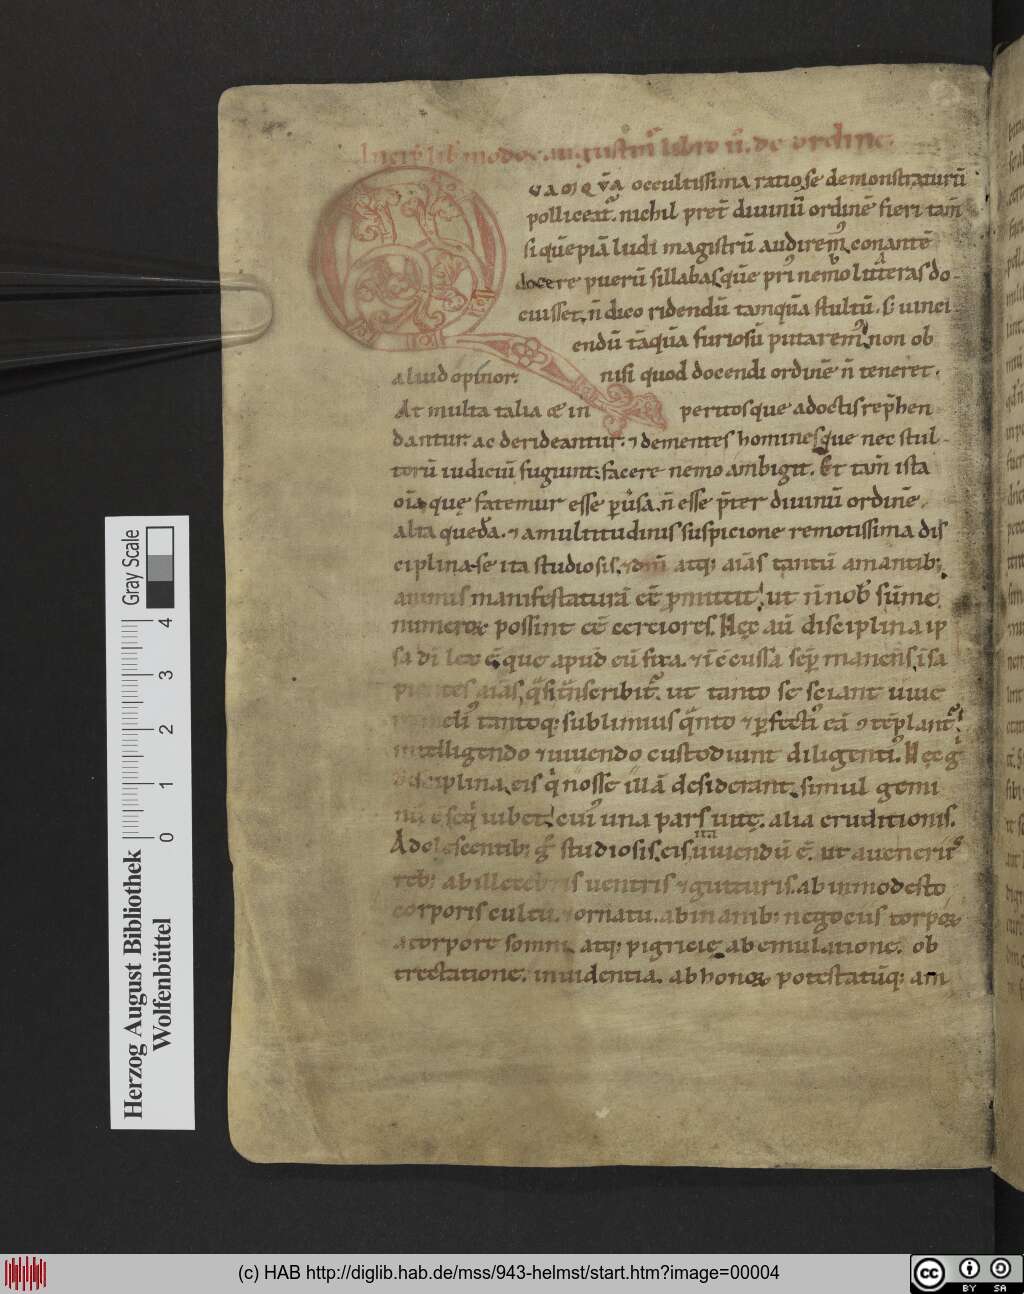 augustini libro ii. de ordine.
QUAMQVĀ occultissima ratio se demonstraturū
polliceat᷒. nichil pret̄ diuinū ordinē fieri tam̄
si quēpiā ludi magistrū audirem᷒ conantē
docere puerū sillabas, quē pri᷒ nemo litteras do-
cuisset, n̄ dico ridendū tamquā stultū. s; uinci
endū tāquā furiosū putarem᷒, non ob
aliud opinor. nisi quod docendi ordinē n̄ teneret.
At multa talia & in peritosque a doctis rep̄hen
dantur ac derideantur. ⁊ dementes hominesque nec stul-
torū iudiciū fugiunt: facere nemo ambigit. Et tam̄ ista
om̄ia quę fatemur esse puersa. n̄ esse p̄ter diuinū ordinē,
alta quedā. ⁊ a multitudinis suspicione remotissima dis
ciplina. se ita studiosis, ⁊ dm̄ atq; aīas tantū amantib;
animis manifestaturā eē p̄mittit, ut n̄ nob̄ sūme
numeroꝝ possint eē certiores. Hęc aū disciplina ip
sa dī lex ē, que apud eū fixa. ⁊ īcōcussa sēp̄ manens, ī sa
pientes aīas, q̄si tn̄scribit᷒. ut tanto se sciant uiue
re meli᷒ tantoq; sublimius q̄nto ⁊ p̄fecti᷒ eā ꝯtēplant᷒.
intelligendo ⁊ uiuendo custodiunt diligenti᷒. Hęc g̊
disciplina, eis q̇ nosse illā desiderant, simul gemi
nū ordinē seq̇ iubet, cui᷒ una pars uitę. alia eruditionis.
Adolescentib; g̊ studiosis, eis ita uiuendū ē. ut a ueneriis
reb; ab illecebris uentris ⁊ gutturis. ab inmodesto
corporis cultu. ⁊ ornatu. ab inanib; negociis
a torpore somni, atq; pigricię, ab emulatione. ob
trectatione. inuidentia. ab honoꝝ potestatūq; am
Herzog August Bibliothek
Wolfenbüttel
Gray Scale
0 1 2 3 4
(c) HAB http://diglib.hab.de/mss/943-helmst/start.htm?image=00004
cc BY SA